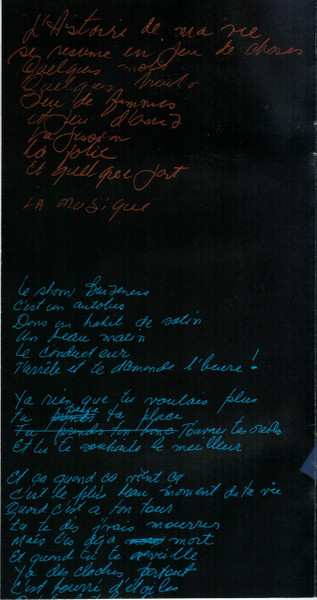 L'Histoire de ma vie
se résume en peu de choses
Quelques mots
Quelques
Peu de femmes
et peu d'
La passion
La folie
Et quelque part
LA MUSIQUE
Le show business
C'est un autobus
Dans un habit de satin
Un beau matin
Le conducteur
T'arrête et te demande l'heure!
Ya rien que tu voulais plus
Tu ta place
Tu prends ton banc Tourne
Et tu te souhaite le meilleur
Et ça quand ça vient ça
C'est le plus beau moment de ta vie
Quand c'est à ton tour
tu te dis j'vais mourrir
Mais t'es déjà mort
Et quand tu te réveille
Ya des cloches partout
C'est bourré d'étoiles